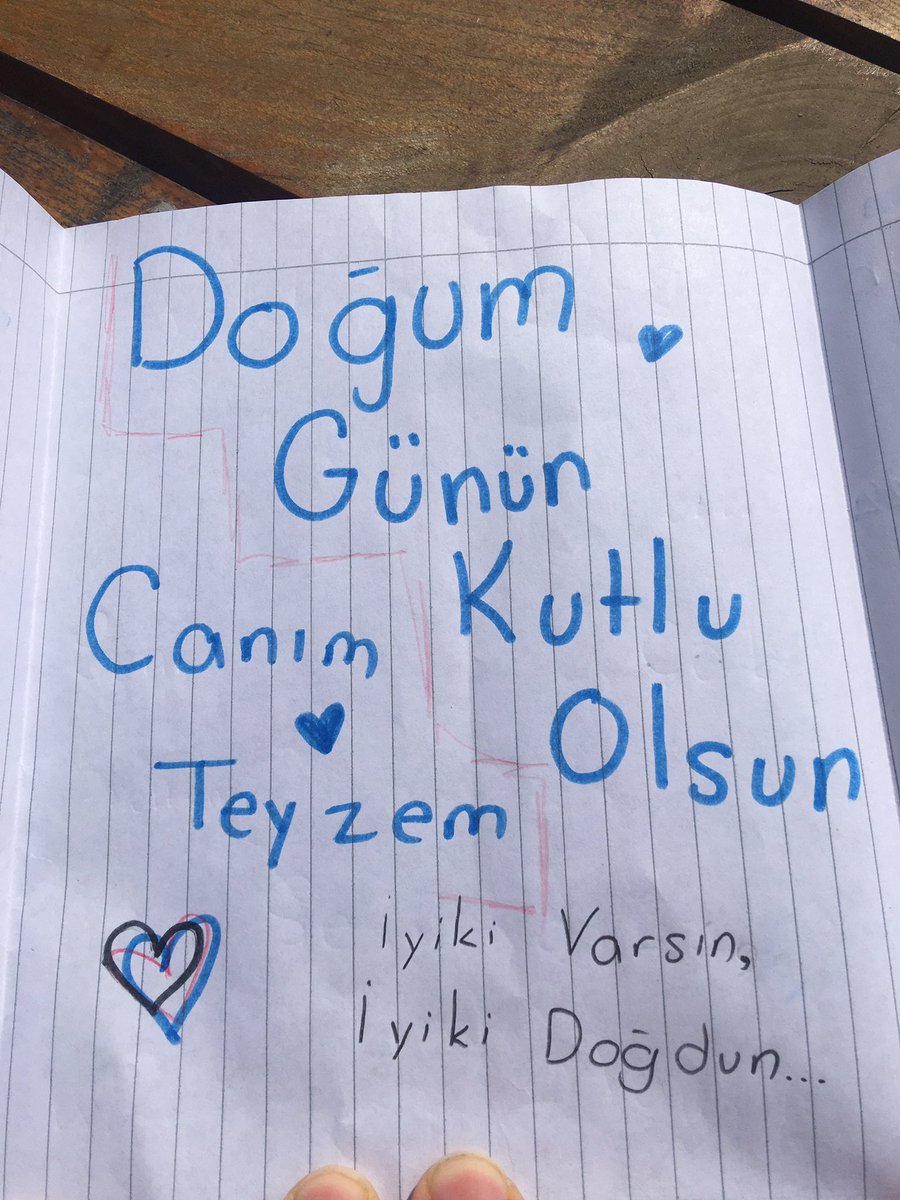 Doğum
Günün
Kutlu
Olsun
Canım
Teyzem
iyiki Varsın,
İyiki Doğdun...